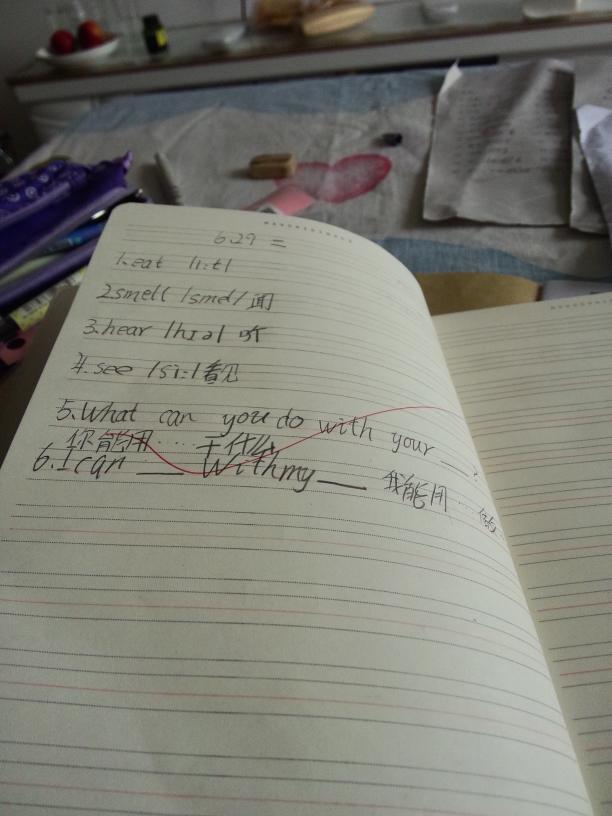 6.29 二
1.eat /i:t/
2.smell /smel/ 闻
3.hear /hiə/ 听
4.see /si:/ 看见
5.What can you do with your __?
你能用……干什么
6.I can __ with my __ 我能用…做